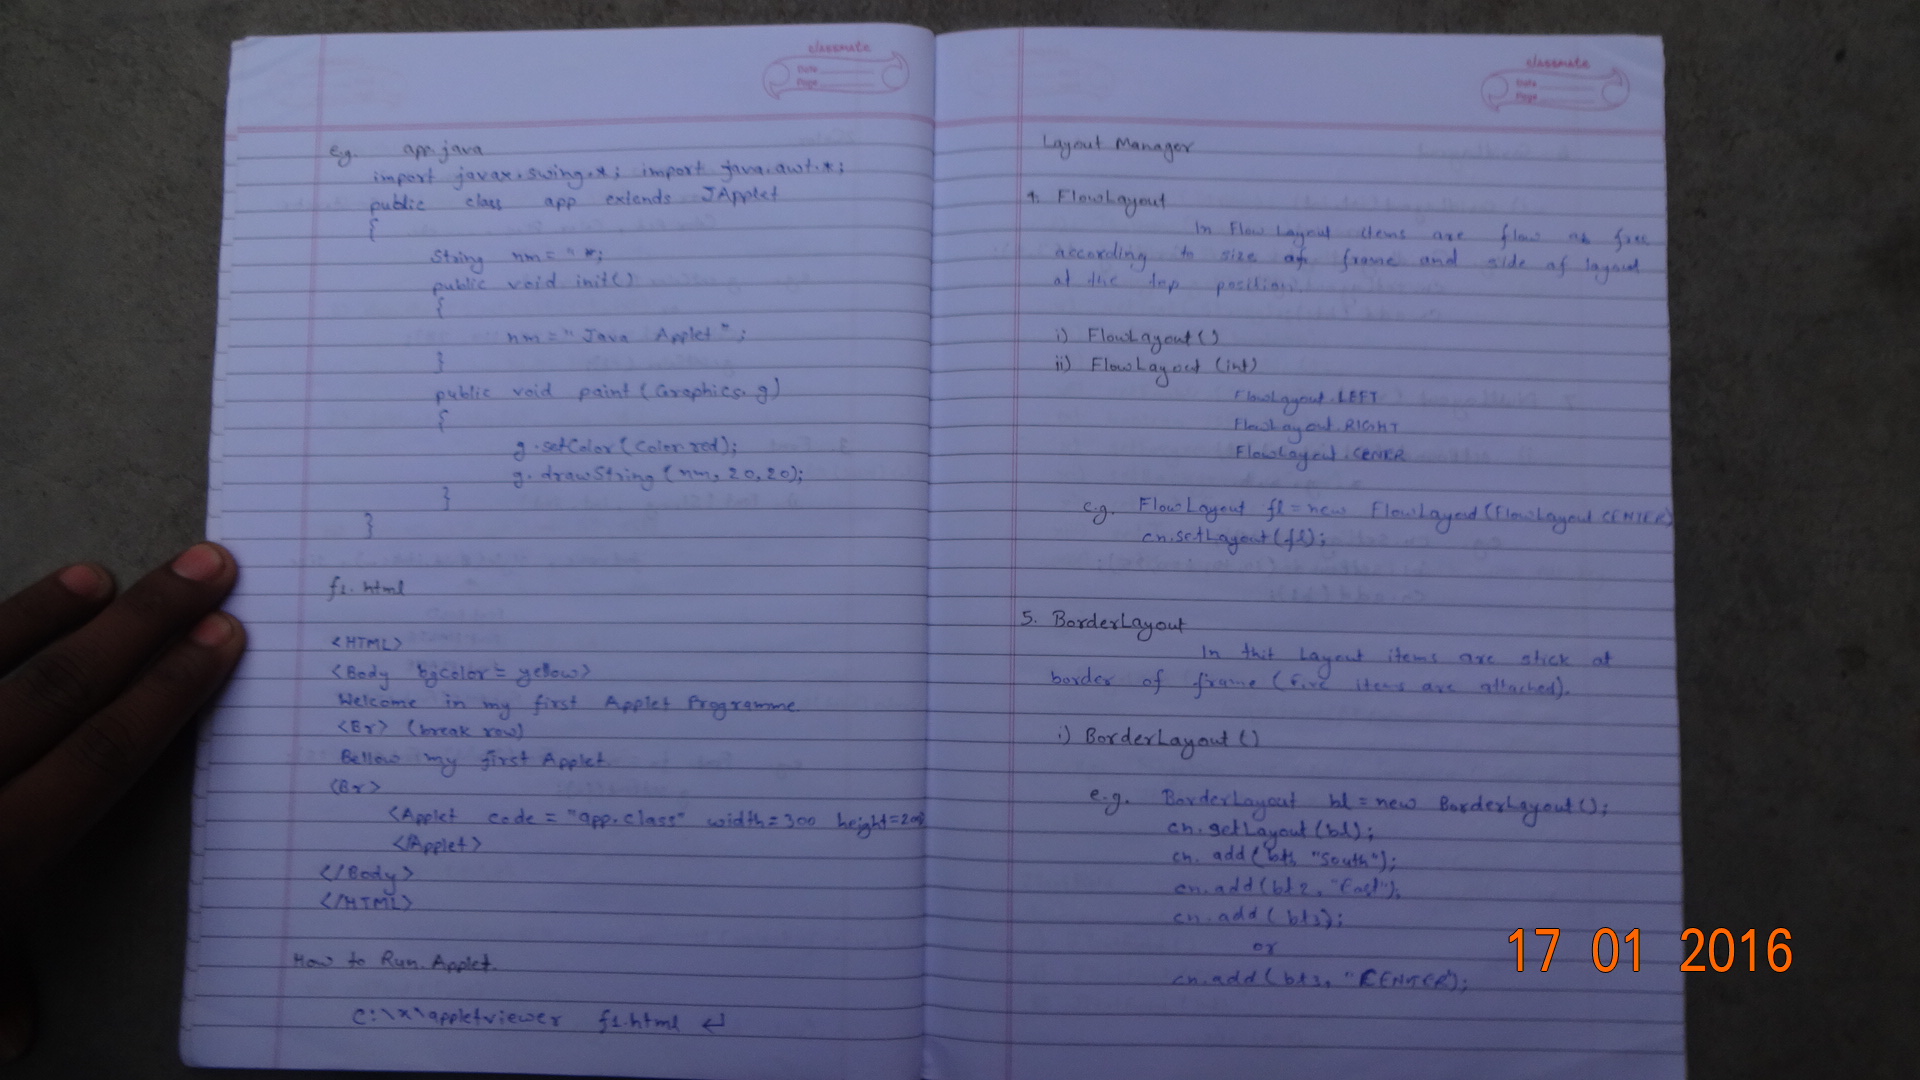 classmate
Date
Page
e.g. app.java
import javax.swing.*; import java.awt.*;
public class app extends JApplet
{
String nm = " *;
public void init()
{
nm = "Java Applet";
}
public void paint (Graphics. g)
{
g.setColor (Color.red);
g.drawString (nm, 20,20);
}
}
f1.html
<HTML>
<Body bgcolor = yellow>
Welcome in my first Applet Programme
<Br> (break row)
Bellow my first Applet
<Br>
<Applet code = "app.class" width=300 height=200
</Applet>
</Body>
</HTML>
How to Run Applet.
C:\x\appletviewer f1.html ↵
classmate
Date
Page
Layout Manager
4. FlowLayout
In Flow Layout items are flow as free
according to size of frame and side of layout
at the top position.
i) FlowLayout ()
ii) FlowLayout (int)
FlowLayout.LEFT
FlowLayout.RIGHT
FlowLayout.CENER
e.g. FlowLayout fl = new FlowLayout (FlowLayout CENTER)
cn.setLayout (fl);
5. BorderLayout
In this Layout items are stick at
border of frame (five items are attached).
i) BorderLayout ()
e.g. BorderLayout bl = new BorderLayout ();
cn.setLayout (bl);
cn. add ( "South");
cn.add (bt2, "East");
cn.add ( bt3);
or
cn.add ( bt3, "CENTER);
17 01 2016